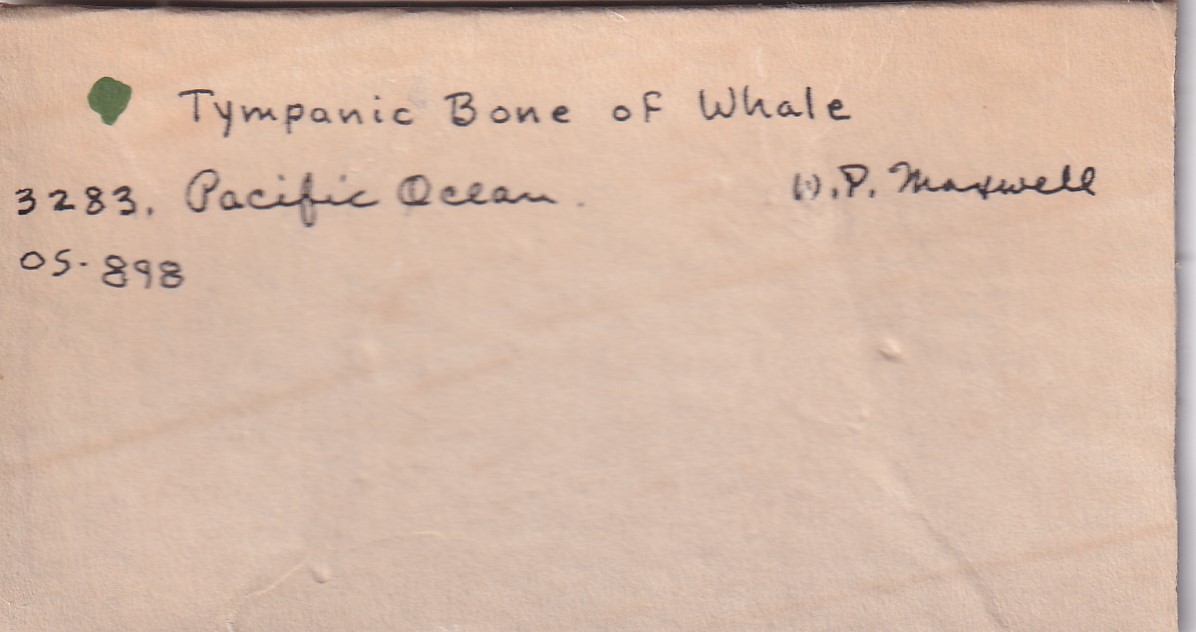 Tympanic Bone of Whale
3283. Pacific Ocean. W.P. Maxwell
OS-898